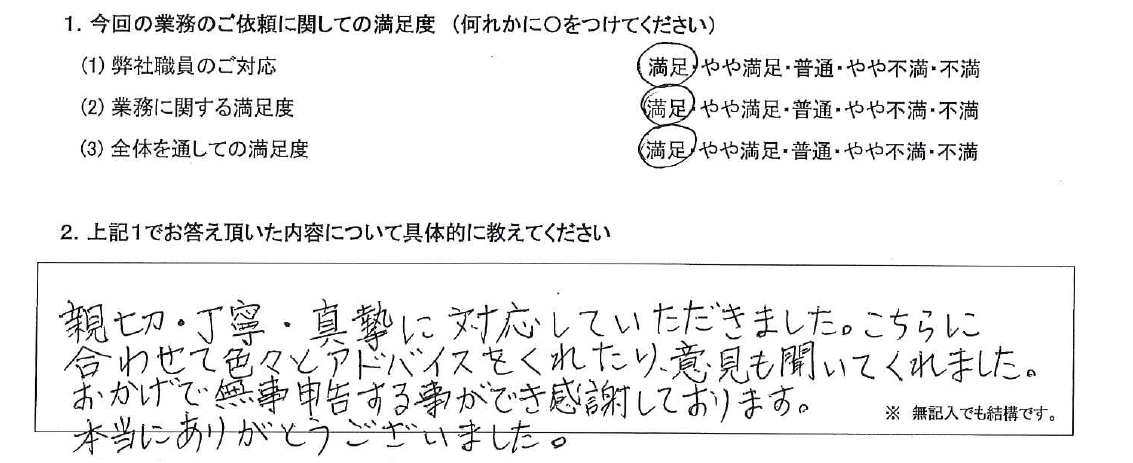 1. 今回の業務のご依頼に関しての満足度 (何れかに〇をつけてください)
(1) 弊社職員のご対応 満足・やや満足・普通・やや不満・不満
(2) 業務に関する満足度 満足・やや満足・普通・やや不満・不満
(3) 全体を通しての満足度 満足・やや満足・普通・やや不満・不満
2. 上記1でお答え頂いた内容について具体的に教えてください
親切・丁寧・真摯に対応していただきました。こちらに
合わせて色々とアドバイスをくれたり、意見も聞いてくれました。
おかげで無事申告する事ができ感謝しております。
※ 無記入でも結構です。
本当にありがとうございました。